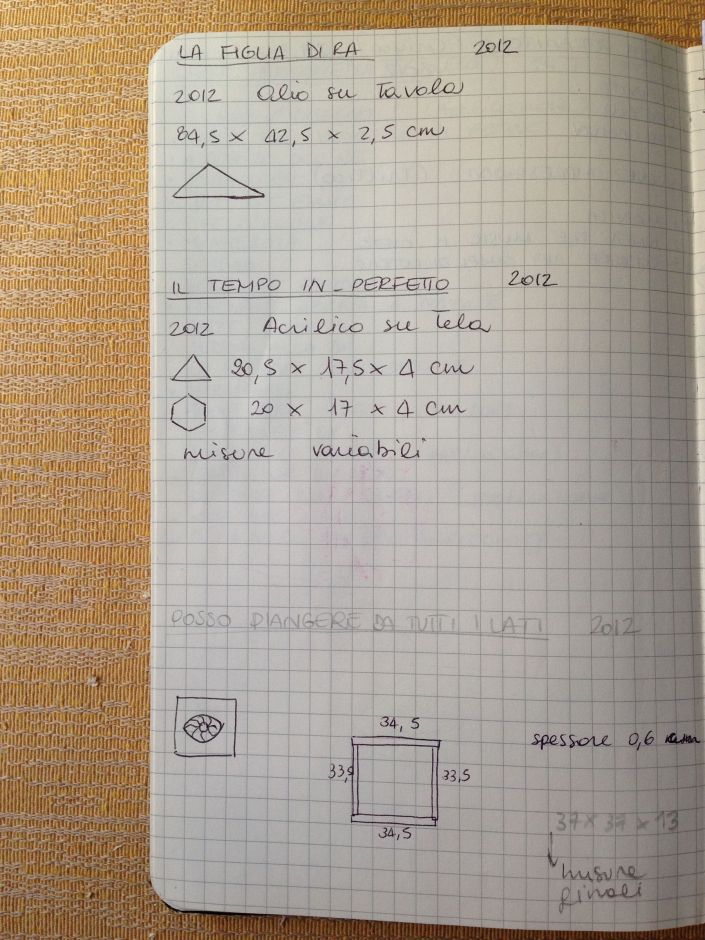 LA FIGLIA DI RA 2012
2012 Olio su Tavola
84,5 x 42,5 x 2,5 cm
IL TEMPO IN-PERFETTO 2012
2012 Acrilico su Tela
20,5 x 17,5 x 4 cm
20 x 17 x 4 cm
misure variabili
POSSO PIANGERE DA TUTTI I LATI 2012
34,5
spessore 0,6
33,5 33,5
34,5
37 x 37 x 13
misure
finali